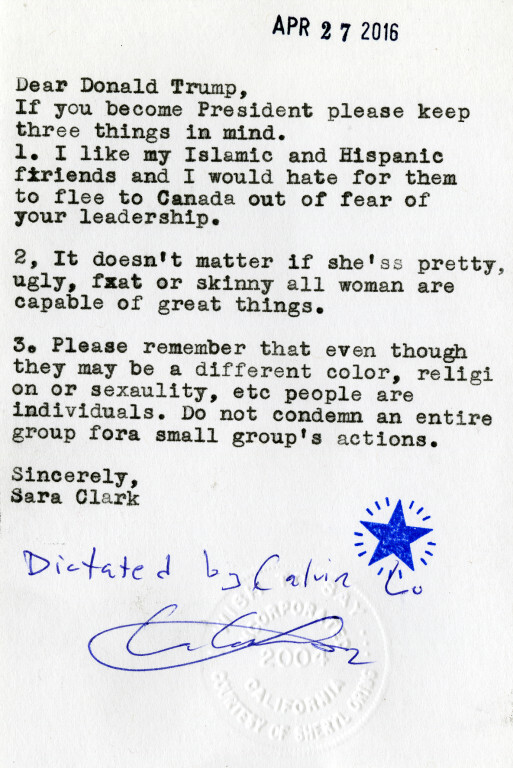 APR 27 2016
Dear Donald Trump,
If you become President please keep
three things in mind.
1. I like my Islamic and Hispanic
fxriends and I would hate for them
to flee to Canada out of fear of
your leadership.
2, It doesn't matter if she'ss pretty,
ugly, fxat or skinny all woman are
capable of great things.
3. Please remember that even though
they may be a different color, religi
on or sexaulity, etc people are
individuals. Do not condemn an entire
group fora small group's actions.
Sincerely,
Sara Clark
Dictated by Calvin Co
INCORPORATED
2004
CALIFORNIA
COURTESY OF SHERYL